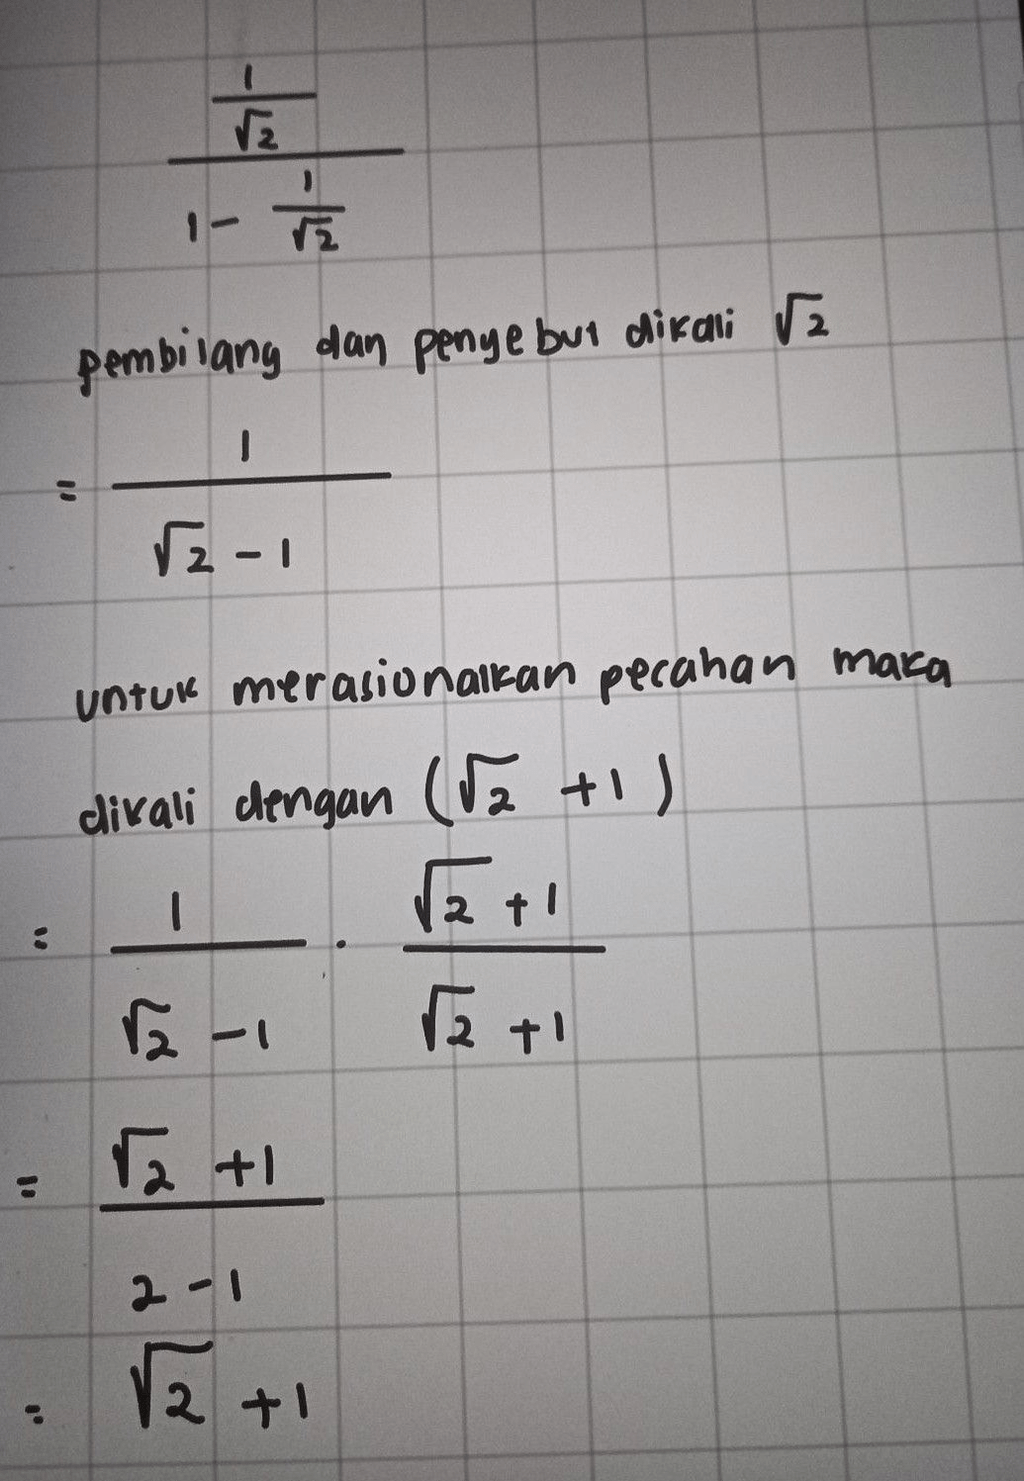 1/√2
1 - 1/√2
pembilang dan penyebut dikali √2
= 1
√2 - 1
untuk merasionalkan pecahan maka
dikali dengan (√2 + 1)
= 1/(√2 - 1) . (√2 + 1)/(√2 + 1)
= √2 + 1
2 - 1
= √2 + 1